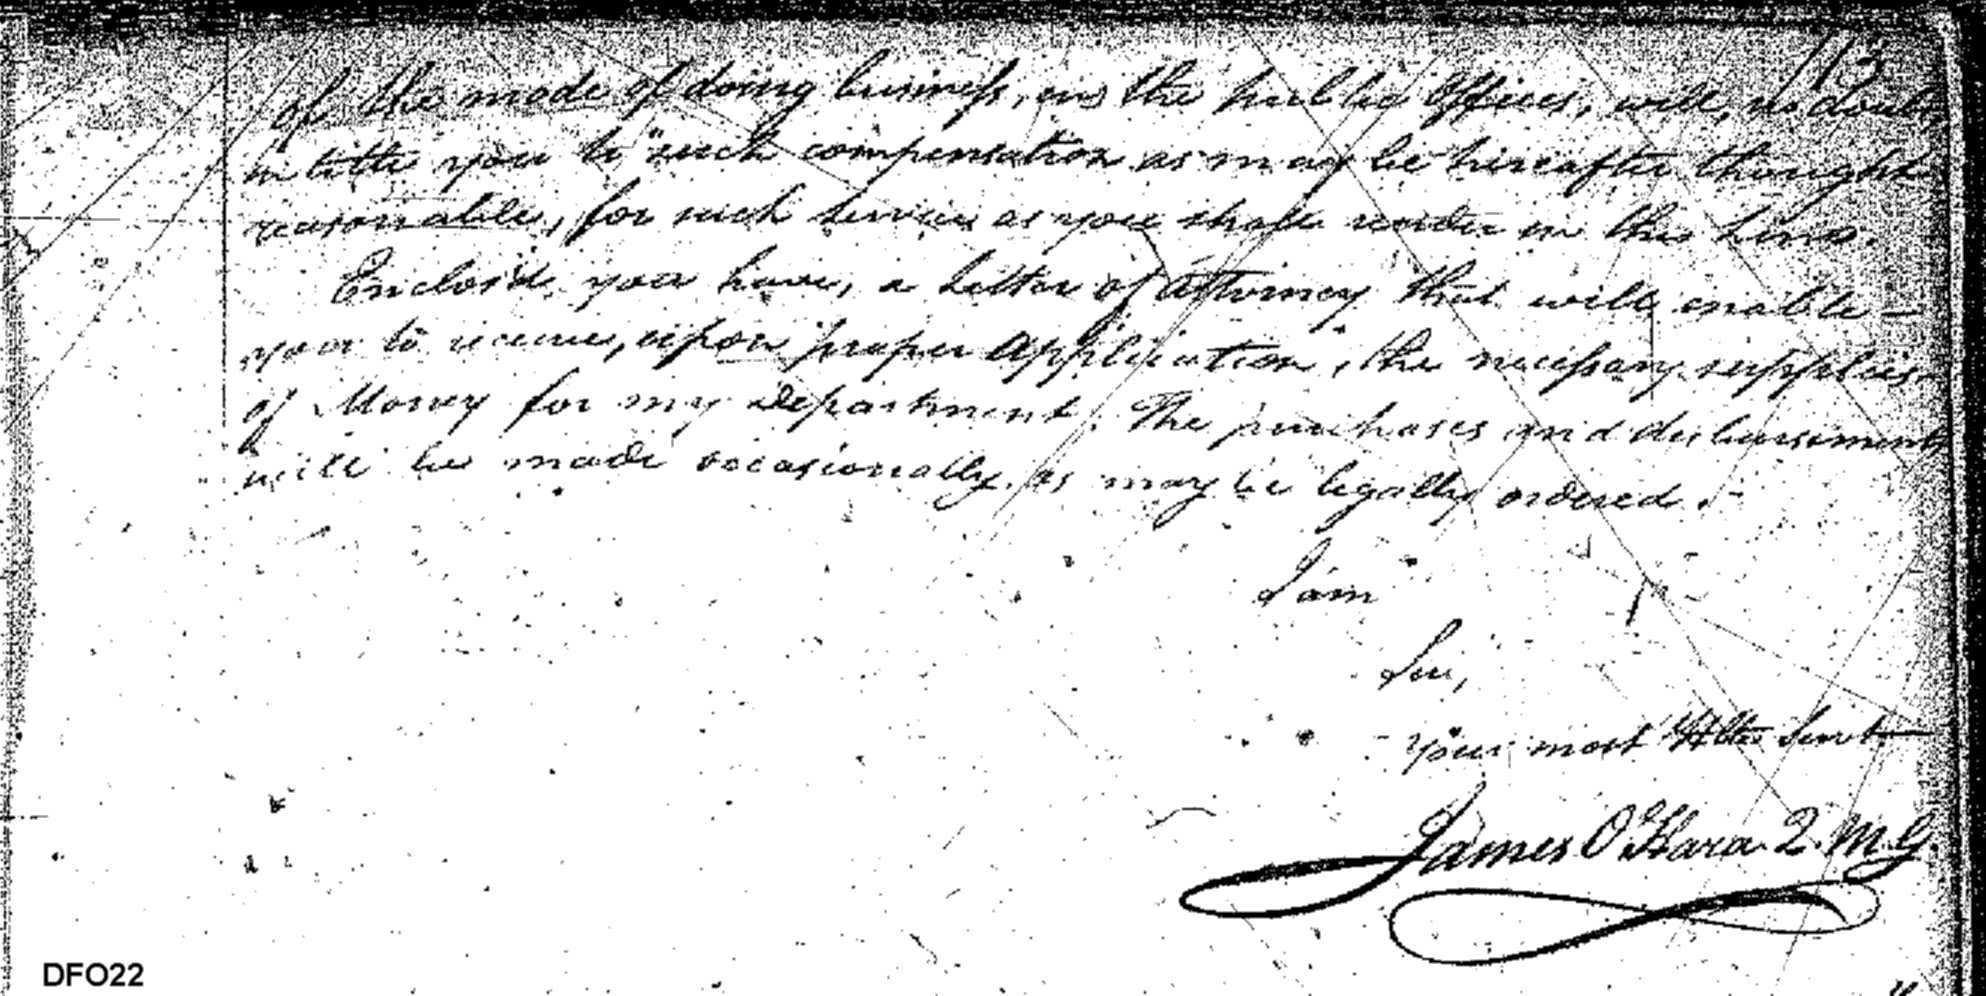 113
of the mode of doing business, in the public Offices, will, no doubt,
intitle you to such compensation as may be hereafter thought
reasonable, for such services as you shall render in this Line.
Enclos'd you have, a Letter of Attorney that will enable —
you to receive, upon proper Application, the necessary supplies
of Money for my Department. The purchases and disbursements
will be made occasionally, as may be legally ordered. -
I am
Sir,
Your most Hble Servt
James O'Hara Q.M.G.
DFO22